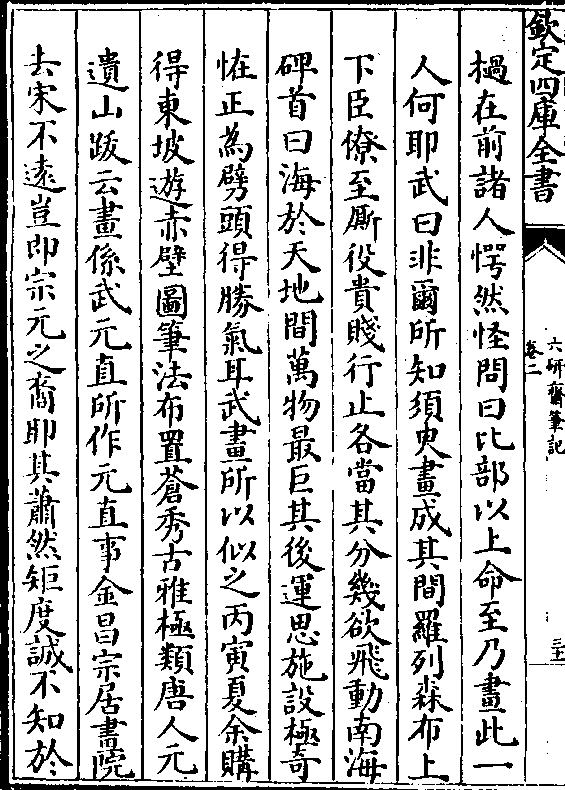 欽定四庫全書
六研齋筆記
卷二
檛在前諸人愕然怪問曰比部以上命至乃畫此一
人何耶武曰非爾所知須臾畫成其間羅列森布上
下臣僚至厮役貴賤行止各當其分幾欲飛動南海
碑首曰海於天地間萬物最巨其後運思施設極奇
恠正為劈頭得勝氣耳武畫所以似之丙寅夏余購
得東坡遊赤壁圖筆法布置蒼秀古雅極類唐人元
遺山跋云畫係武元直所作元直事金昌宗居畫院
去宋不遠豈即宗元之裔耶其蕭然矩度誠不知於